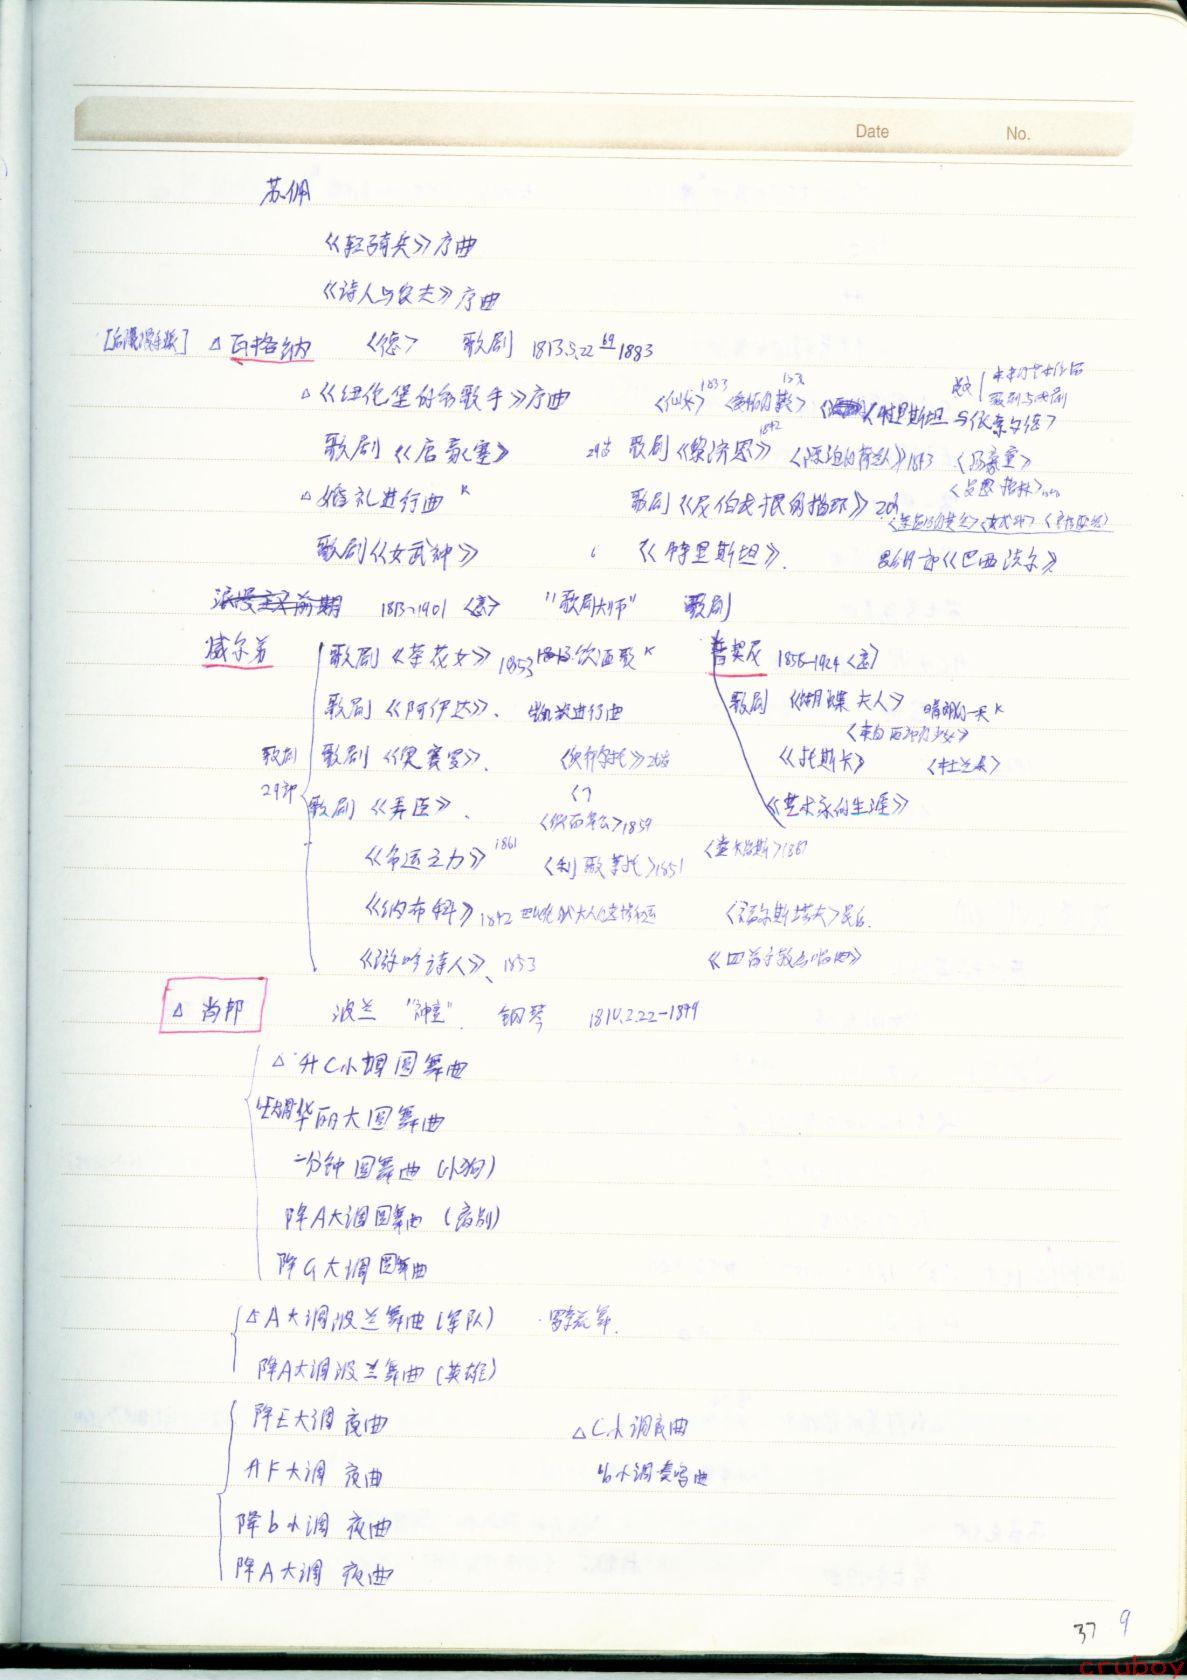 Date No.
苏佩
《轻骑兵》序曲
《诗人与农夫》序曲
△ 瓦格纳 〈德〉 歌剧 1813.5.22 69 1883
△《纽伦堡的名歌手》序曲 〈仙女〉1833 〈特里斯坦与依索尔德〉
歌剧与戏剧
歌剧《唐豪塞》 29岁 歌剧《黎济恩》1842 〈漂泊的荷兰人〉1843
△ 婚礼进行曲 K 歌剧《尼伯龙根的指环》
〈莱茵的黄金〉〈女武神〉
歌剧《女武神》 《特里斯坦》. 《巴西法尔》
浪漫主义前期 1813~1901 〈意〉 "歌剧大师" 歌剧
威尔第 歌剧《茶花女》1853 饮酒歌 K 普契尼 1858-1924〈意〉
歌剧《阿伊达》. 凯旋进行曲 歌剧 《蝴蝶夫人》 晴朗的一天 K
〈来自西部的少女〉
歌剧 29部 歌剧《奥赛罗》. 26岁 《托斯卡》 〈杜兰朵〉
歌剧《弄臣》. 〈? 《艺术家的生涯》
〈假面舞会〉1859
《命运之力》1861 〈利哥莱托〉1851 〈唐卡洛斯〉1867
《纳布科》1842 〈法尔斯塔夫〉最后
《游吟诗人》、1853 《四首宗教合唱曲》
△ 肖邦 波兰 "神童". 钢琴 1810.2.22-1849
△ 升C小调圆舞曲
华丽大圆舞曲
一分钟圆舞曲(小狗)
降A大调圆舞曲(离别)
降G大调圆舞曲
△A大调波兰舞曲(军队)
降A大调波兰舞曲(英雄)
降E大调 夜曲 △C小调夜曲
升F大调 夜曲
降b小调 夜曲
降A大调 夜曲
37 9
cruboy